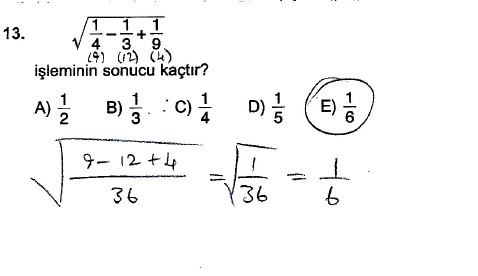 13. √(1/4 − 1/3 + 1/9)
(9) (12) (4)
işleminin sonucu kaçtır?
A) 1/2 B) 1/3 C) 1/4 D) 1/5 E) 1/6
√((9 − 12 + 4)/36) = √(1/36) = 1/6